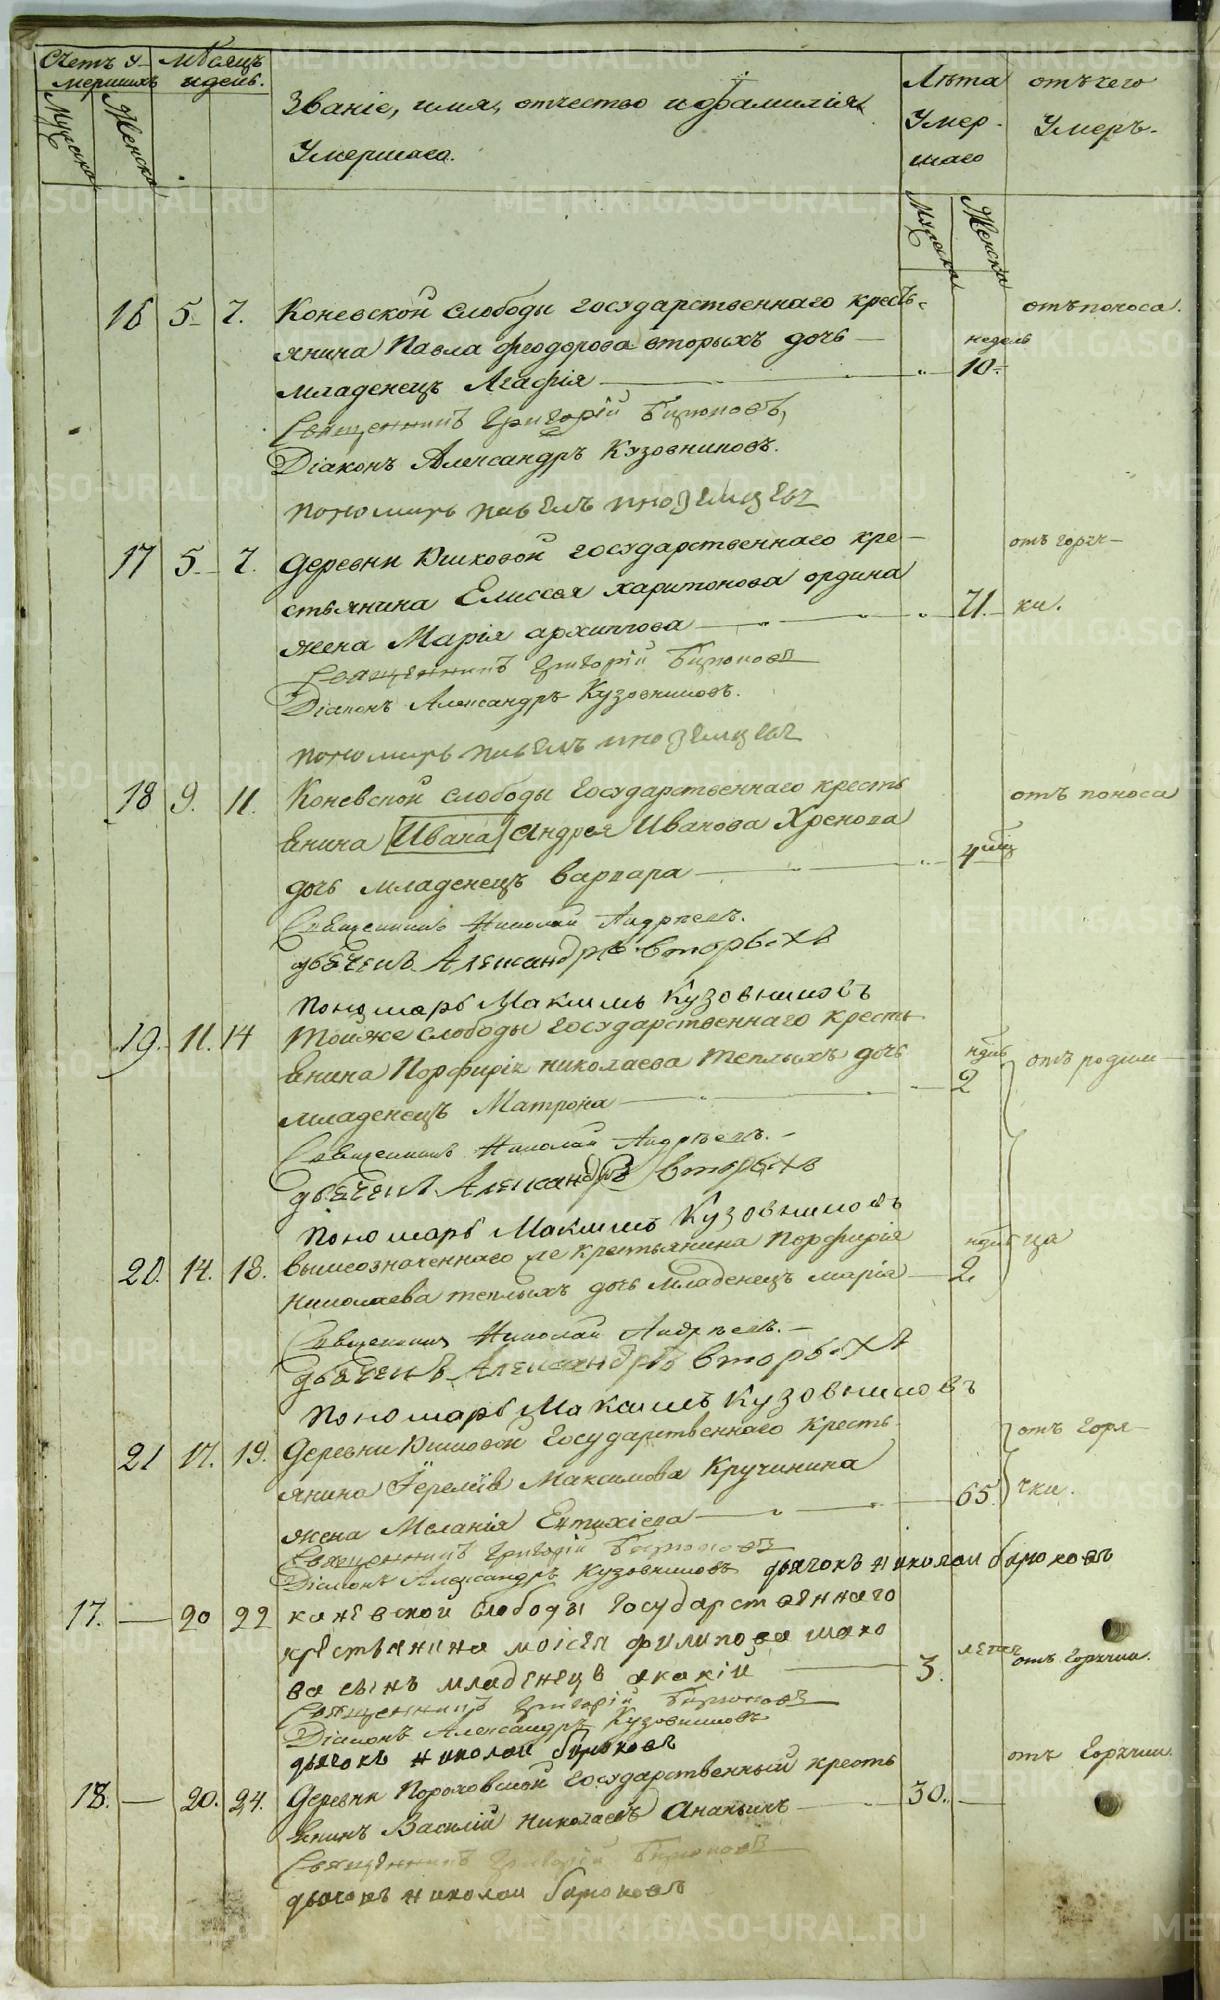 Счетъ у-
мершихъ
Мѣсяцъ
и день.
Званіе, имя, отчество и фамилія
Умершаго.
Лѣта
Умер-
шаго
отъ чего
Умеръ.
Мужска
Женска
Мужска
Женска
16 5. 7. Коневской слободы государственнаго кресть- отъ поноса.
янина Павла Феодорова вторыхъ дочь — недель
младенецъ Агафія — 10.
Священникъ Григорій Бирюковъ,
Діаконъ Александръ Кузовниковъ.
пономарь павелъ иноземцевъ
17 5. 7. Деревни Юшковой государственнаго кре- отъ горяч-
стьянина Елисея харитонова ордина
жена Марія архипова — 71. ки.
Священникъ Григорій Бирюковъ
Діаконъ Александръ Кузовниковъ.
пономарь павелъ иноземцевъ
18 9. 11. Коневской слободы Государственнаго кресть отъ поноса
янина Ивана Андрея Иванова Хренова
дочь младенецъ варвара — 4 мѣц
Священникъ Николай Андреевъ.
дьячекъ Александръ вторыхъ
пономарь Максимъ Кузовниковъ
19. 11. 14 Тойже слободы Государственнаго кресть
янина Порфирія николаева теплыхъ дочь ндѣль отъ родим-
младенецъ Матрона — 2
Священникъ Николай Андреевъ.
дьячекъ Александръ вторыхъ
пономарь Максимъ Кузовниковъ
20. 14. 18. вышеозначеннаго же крестьянина Порфирія ндѣль ца
Николаева теплыхъ дочь младенецъ марія — 2.
Священникъ Николай Андреевъ.
дьячекъ Александръ вторыхъ
пономарь Максимъ Кузовниковъ
21 17. 19. Деревни Юшковой Государственнаго кресть- отъ горя-
янина Максимова Кручинина
жена Меланія Евтихіева — 65. чки.
Священникъ Григорій Бирюковъ
Діаконъ Александръ Кузовниковъ дьячокъ николай бирюковъ
17. — 20 22 каневской слободы Государственнаго
крестьянина моісея филипова шахо
ва сынъ младенецъ акакій — 3. лета отъ горячки.
Священникъ Григорій Бирюковъ
Діаконъ Александръ Кузовниковъ
дьячокъ николай бирюковъ
18. — 20. 24. Деревни Пороховской Государственный кресть 30. — отъ Горячки.
янинъ Василій Николаевъ Ананьинъ —
Священникъ Григорій Бирюковъ
дьячокъ николай бирюковъ
METRIKI.GASO-URAL.RU